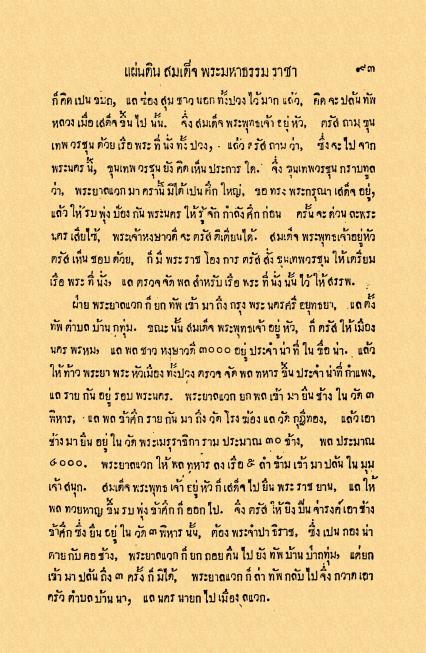 แผ่นดิน สมเด็จ พระมหาธรรม ราชา ๙๓
ก็ คิด เปน ขบถ, แล ซ่อง สุม ชาว นอก ทั้งปวง ไว้ มาก แล้ว, คิด จะ ปล้น ทัพ
หลวง เมื่อ เสด็จ ขึ้น ไป นั้น. จึ่ง สมเด็จ พระพุทธเจ้า อยู่ หัว, ตรัส ถาม ขุน
เทพ วรชุน ด้วย เรือ พระ ที่ นั่ง ทั้ง ปวง, แล้ว ตรัส ถาม ว่า, ซึ่ง จะ ไป จาก
พระนคร นี้, ขุนเทพวรชุน ยัง คิด เห็น ประการ ใด. จึ่ง ขุนเทพวรชุน กราบทูล
ว่า, พระยาลแวก มา ครานี้ มิได้ เปน ศึก ใหญ่, ขอ ทรง พระกรุณา เสด็จ อยู่,
แล้ว ให้ รบ พุ่ง ป้อง กัน พระนคร ให้ รู้ จัก กำลัง ศึก ก่อน ครั้น จะ ด่วน ละพระ
นคร เสีย ไซ้, พระเจ้าหงษาวดี จะ ตรัส ติเตียนได้. สมเด็จ พระพุทธเจ้าอยู่หัว
ตรัส เห็น ชอบ ด้วย, ก็ มี พระ ราช โอง การ ตรัส สั่ง ขุนเทพวรชุน ให้ เตรียม
เรือ พระ ที่ นั่ง, แล ตรวจ จัด พล สำหรับ เรือ พระ ที่ นั่ง นั้น ไว้ ให้ สรรพ.
ฝ่าย พระยาลแวก ก็ ยก ทัพ เข้า มา ถึง กรุง พระ นครศรี อยุทธยา, แล ตั้ง
ทัพ ตำบล บ้าน กุ่ม. ขณะ นั้น สมเด็จ พระพุทธเจ้า อยู่ หัว, ก็ ตรัส ให้ เมือง
นคร พรหม, แล พล ชาว หงษาวดี ๓๐๐๐ อยู่ ประจำ น่า ที่ ใน ขื่อ น่า. แล้ว
ให้ ท้าว พระยา พระ หัวเมือง ทั้งปวง ตรวจ จัด พล ทหาร ขึ้น ประจำ น่าที่ กำแพง,
แล ราย กัน อยู่ รอบ พระนคร. พระยาลแวก ยก พล เข้า มา ยืน ช้าง ใน วัด ๓
พิหาร, แล พล ข้าศึก ราย กัน มา ถึง วัด โรง ฆ้อง แล วัด กุฎีทอง, แล้วเอา
ช้าง มา ยืน อยู่ ใน วัด พระเมรุราชิกา ราม ประมาณ ๓๐ ช้าง, พล ประมาณ
๔๐๐๐. พระยาลแวก ให้ พล ทหาร ลง เรือ ๕ ลำ ข้าม เข้า มา ปล้น ใน มุม
เจ้า สนุก. สมเด็จ พระพุทธ เจ้า อยู่ หัว ก็ เสด็จ ไป ยืน พระ ราช ยาน, แล ให้
พล ทวยหาญ ขึ้น รบ พุ่ง ข้าศึก ก็ ออก ไป. จึ่ง ตรัส ให้ ยิง ปืน จ่ารงค์ เอา ช้าง
ข้าศึก ซึ่ง ยืน อยู่ ใน วัด ๓ พิหาร นั้น, ต้อง พระจำปาธิราช, ซึ่ง เปน กอง น่า
ตาย กับ คอ ช้าง, พระยาลแวก ก็ ยก ถอย คืน ไป ยัง ทัพ บ้าน กุ่ม, แต่ยก
เข้า มา ปล้น ถึง ๓ ครั้ง ก็ มิได้, พระยาลแวก ก็ ล่า ทัพ กลับ ไป จึ่ง กวาด เอา
ครัว ตำบล บ้าน นา, แล นคร นายก ไป เมือง ลแวก.